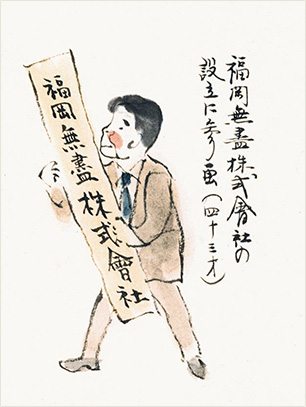 福岡無盡株式會社の
設立に参画(四十三才)
福岡無盡株式會社